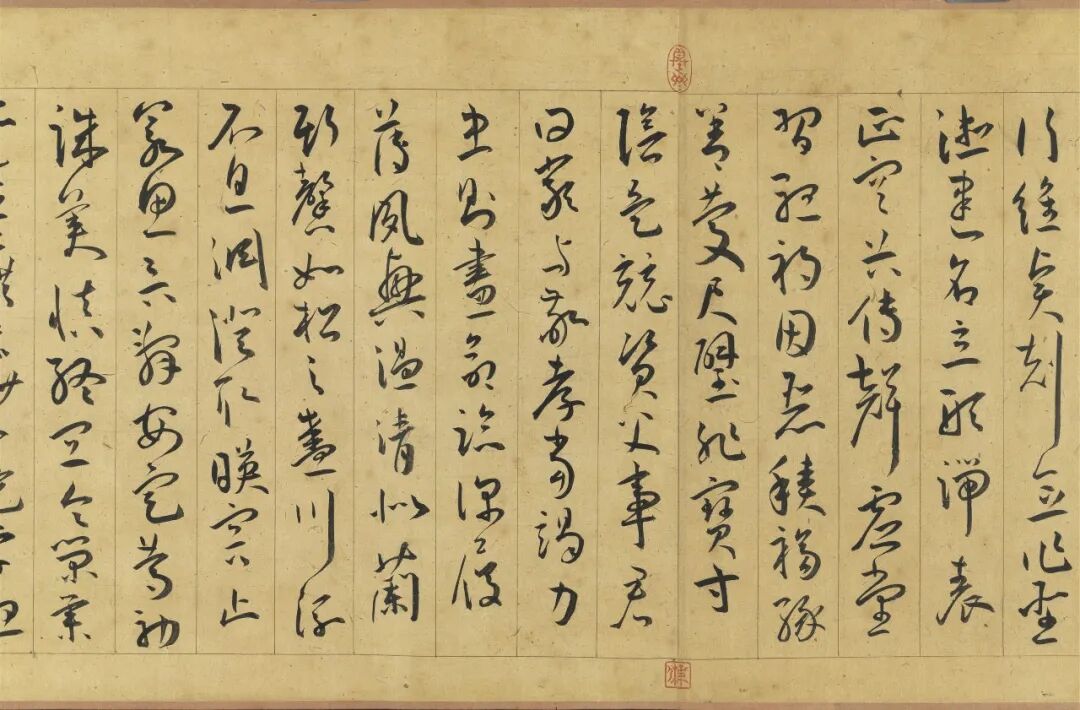 行維賢剋念作聖
德建名立形端表
正空谷傳聲虛堂
習聽禍因惡積福緣
善慶尺璧非寶寸
陰是競資父事君
曰嚴與敬孝當竭力
忠則盡命臨深履
薄夙興溫清似蘭
斯馨如松之盛川流
不息淵澄取映容止
若思言辭安定篤初
誠美慎終宜令榮業